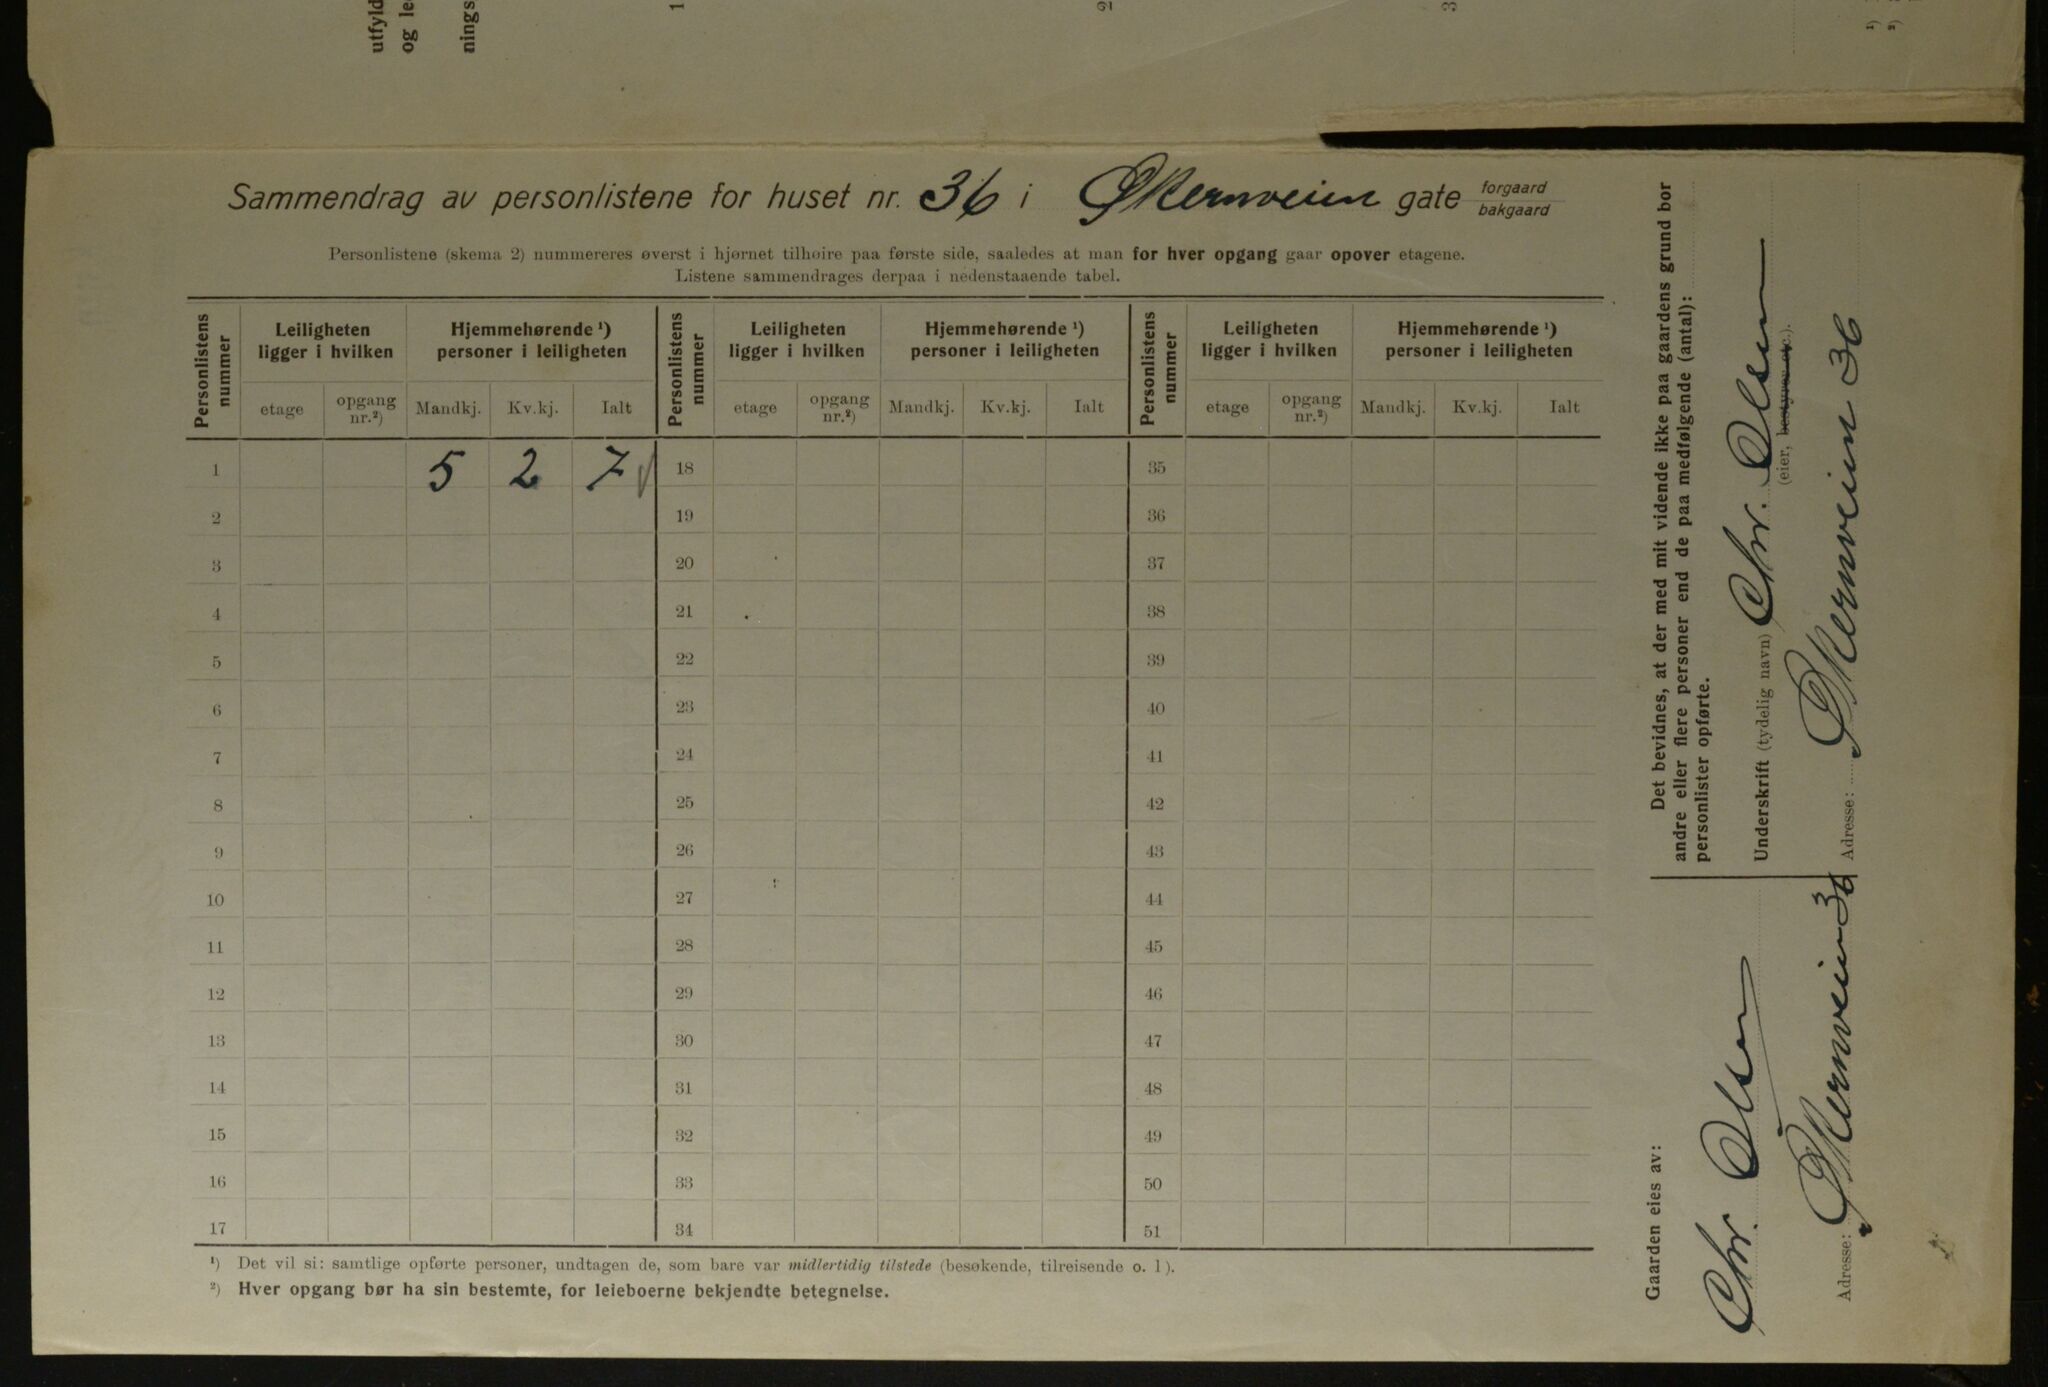 utfyld
og le
nings
1
2
3
¹)
²)
Sammendrag av personlistene for huset nr. 36 i Økernveien gate forgaard
bakgaard
Personlistene (skema 2) nummereres øverst i hjørnet tilhøire paa første side, saaledes at man for hver opgang gaar opover etagene.
Listene sammendrages derpaa i nedenstaaende tabel.
Personlistens nummer
Leiligheten ligger i hvilken
Hjemmehørende ¹) personer i leiligheten
Personlistens nummer
Leiligheten ligger i hvilken
Hjemmehørende ¹) personer i leiligheten
Personlistens nummer
Leiligheten ligger i hvilken
Hjemmehørende ¹) personer i leiligheten
etage opgang nr.²) Mandkj. Kv.kj. Ialt etage opgang nr.²) Mandkj. Kv.kj. Ialt etage opgang nr.²) Mandkj. Kv.kj. Ialt
1 5 2 7 18 35
2 19 36
3 20 37
4 21 38
5 22 39
6 23 40
7 24 41
8 25 42
9 26 43
10 27 44
11 28 45
12 29 46
13 30 47
14 31 48
15 32 49
16 33 50
17 34 51
¹) Det vil si: samtlige opførte personer, undtagen de, som bare var midlertidig tilstede (besøkende, tilreisende o. l).
²) Hver opgang bør ha sin bestemte, for leieboerne bekjendte betegnelse.
Det bevidnes, at der med mit vidende ikke paa gaardens grund bor
andre eller flere personer end de paa medfølgende (antal):
personlister opførte.
Underskrift (tydelig navn) Chr. Olsen
(eier, bestyrer etc.).
Adresse: Økernveien 36
Gaarden eies av:
Chr. Olsen
Adresse: Økernveien 36